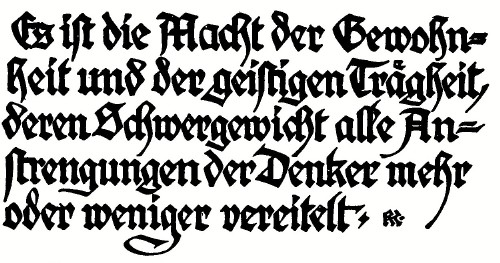 Es ist die Macht der Gewohn-
heit und der geistigen Trägheit,
deren Schwergewicht alle An-
strengungen der Denker mehr
oder weniger vereitelt.